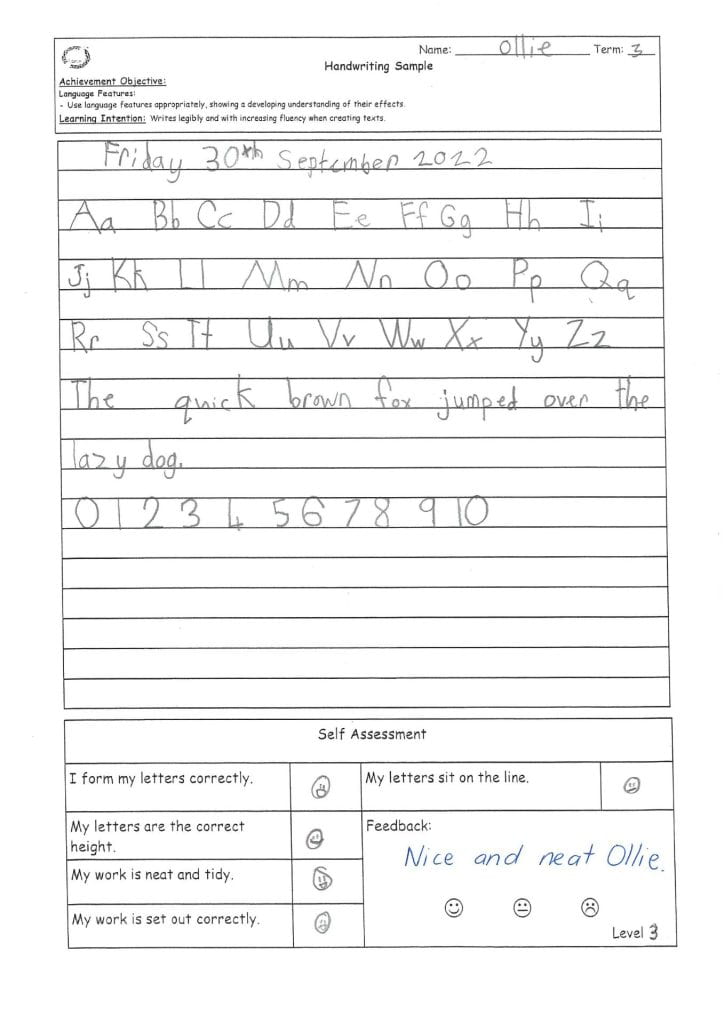 Name: Ollie Term: 3
Handwriting Sample
Achievement Objective:
Language Features:
- Use language features appropriately, showing a developing understanding of their effects.
Learning Intention: Writes legibly and with increasing fluency when creating texts.
Friday 30th September 2022
Aa Bb Cc Dd Ee Ff Gg Hh Ii
Jj Kk Ll Mm Nn Oo Pp Qq
Rr Ss Tt Uu Vv Ww Xx Yy Zz
The quick brown fox jumped over the
lazy dog.
0 1 2 3 4 5 6 7 8 9 10
Self Assessment
I form my letters correctly.
My letters sit on the line.
My letters are the correct
height.
My work is neat and tidy.
My work is set out correctly.
Feedback:
Nice and neat Ollie.
Level 3